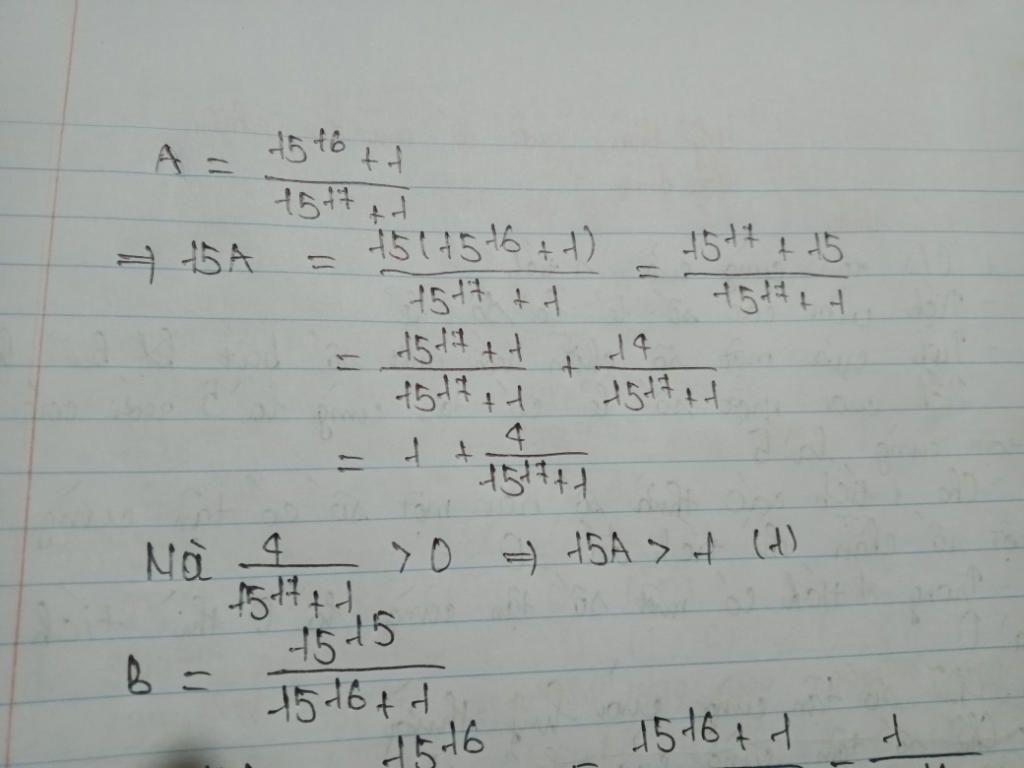 A = \frac{15^{16} + 1}{15^{17} + 1}
⇒ 15A = \frac{15(15^{16} + 1)}{15^{17} + 1} = \frac{15^{17} + 15}{15^{17} + 1}
= \frac{15^{17} + 1}{15^{17} + 1} + \frac{14}{15^{17} + 1}
= 1 + \frac{4}{15^{17} + 1}
Mà \frac{4}{15^{17} + 1} > 0 ⇒ 15A > 1 (1)
B = \frac{15^{15}}{15^{16} + 1}
15^{16} = 15^{16} + 1 - 1